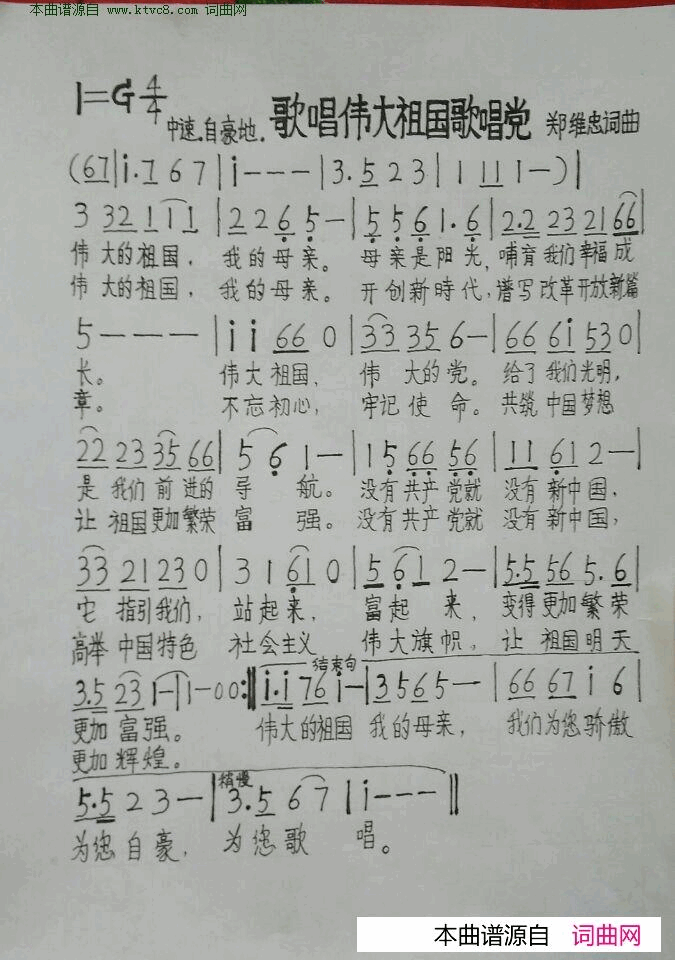 本曲谱源自 www.ktvc8.com 词曲网
1=G 4/4 中速.自豪地. 歌唱伟大祖国歌唱党 郑维忠词曲
(67|i.7 6 7|i---|3.5 2 3|1 11 1-)|
3 32 1 1 1|2 2 6 5-|5 5 6 1.6|2.2 23 21 66|
伟 大的祖国, 我的母亲。 母亲是阳光, 哺育我们幸福成
伟 大的祖国, 我的母亲。 开创新時代, 谱写改革开放新篇
5---|i i 66 0|33 35 6-|66 6i 53 0|
长。 伟大祖国, 伟 大的党。 给了我们光明,
章。 不忘初心, 牢记使命。 共筑中国梦想
22 23 35 66|5 6 1-|1 5 66 56|11 61 2-|
是 我们前进的 导 航。 没有共产党就 没有新中国,
让 祖国更加繁荣 富 强。 没有共产党就 没有新中国,
33 21 23 0|3 1 61 0|5 61 2-|5.5 56 5.6|
它 指引我们, 站起来, 富起 来, 变得更加繁荣
高举中国特色 社会主义 伟大旗帜, 让 祖国明天
结束句
3.5 23 1-|1-00:‖i.i 76 i-|3565-|66 67 i 6|
更加富强。 伟大的祖国 我的母亲, 我们为您骄傲
更加辉煌。
稍慢
5.5 2 3-|3.5 6 7|i---‖
为您自豪, 为您歌 唱。
本曲谱源自 词曲网